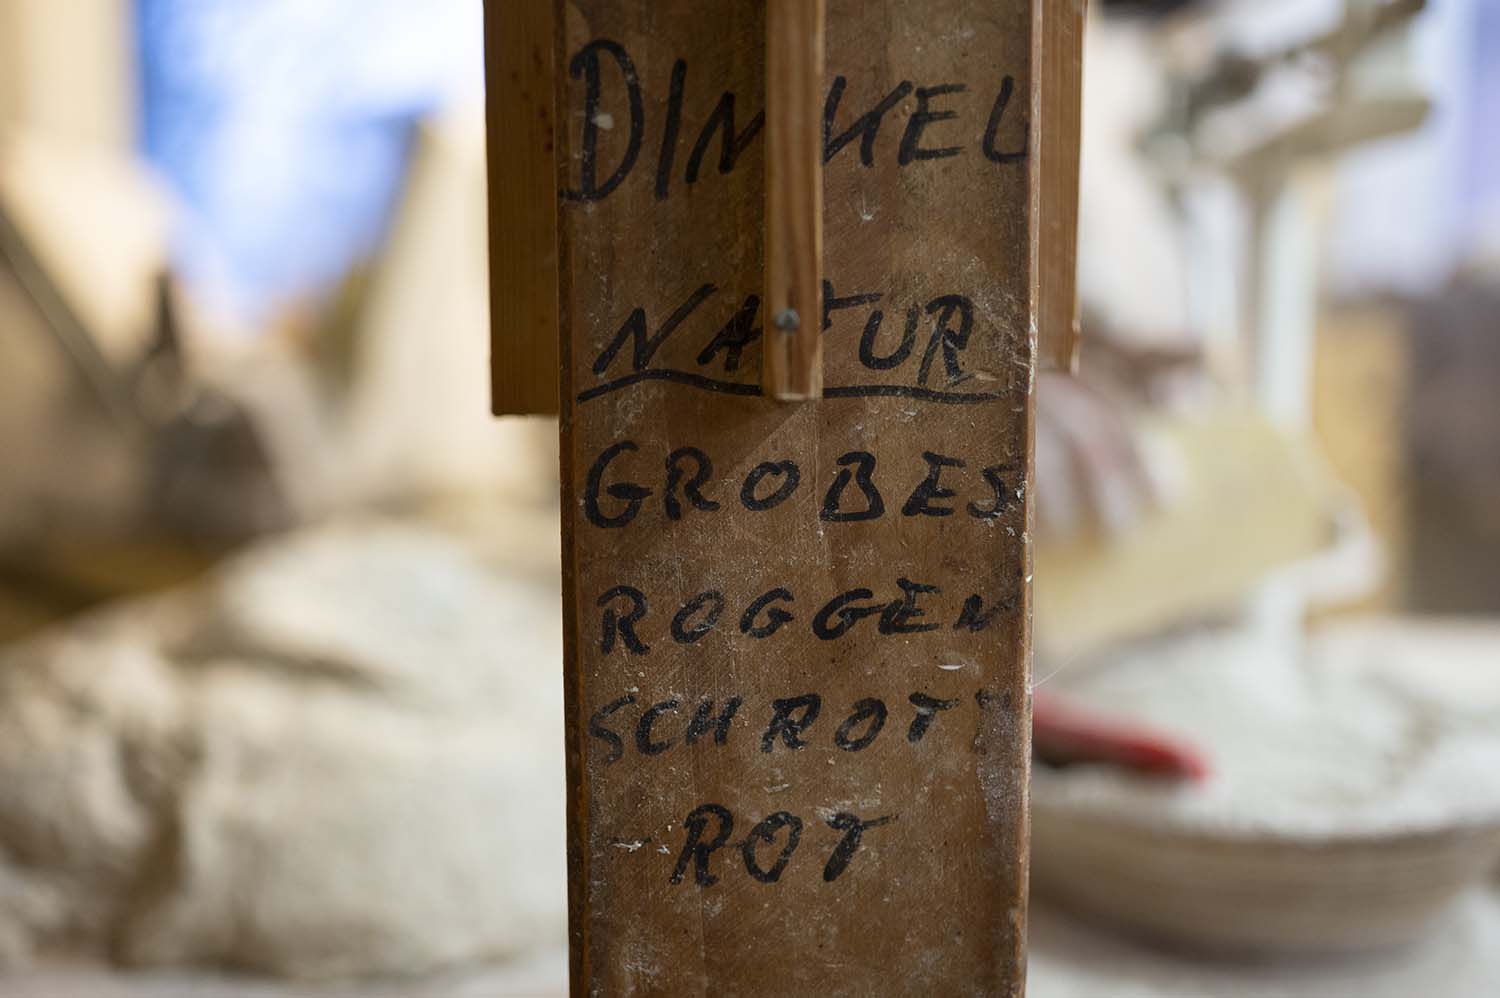 DINKEL
NATUR
GROBES
ROGGEN
SCHROTT
ROT